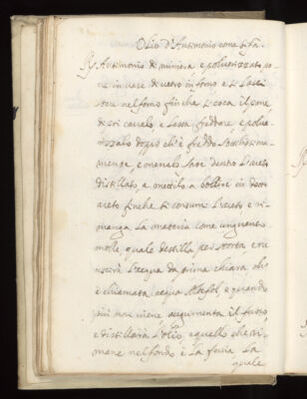 Olio d'Antimonio come si fa.
R. Antimonio di miniera e polverizzato po
ne in vase di vetro in forno e si lasci
stare nel forno fin che si coca il pane
di poi cavalo, e lassa freddare e polve
rizzalo doppo che è freddo sottilissima
mente, e menalo stare dentro l'aceto
distillato, e mettilo a bollire in detto
aceto finche si consumi l'aceto e ri
manga la materia come unguento
molle, quale destilla per storta, e ne
uscirà l'acqua da prima chiara, che
è chiamata acqua, e quando
più non viene augumenta il fuoco
e distillarà l'olio, e quello che ri
mane nel fondo è la fecia la
quale